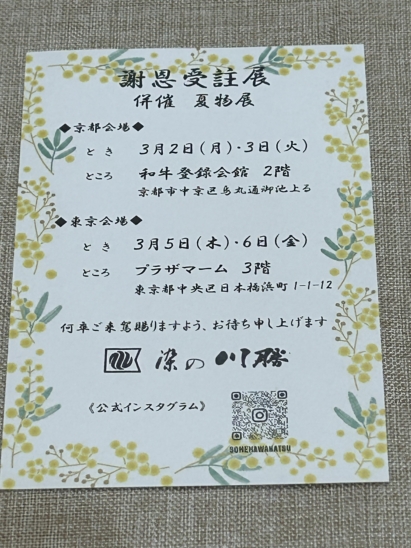 謝恩受註展
併催 夏物展
◆京都会場◆
とき 3月2日(月)・3日(火)
ところ 和牛登録会館 2階
京都市中京区烏丸通御池上る
◆東京会場◆
とき 3月5日(木)・6日(金)
ところ プラザマーム 3階
東京都中央区日本橋浜町1-1-12
何卒ご来駕賜りますよう、お待ち申し上げます
染の川勝
《公式インスタグラム》
SOMEKAWAKATSU